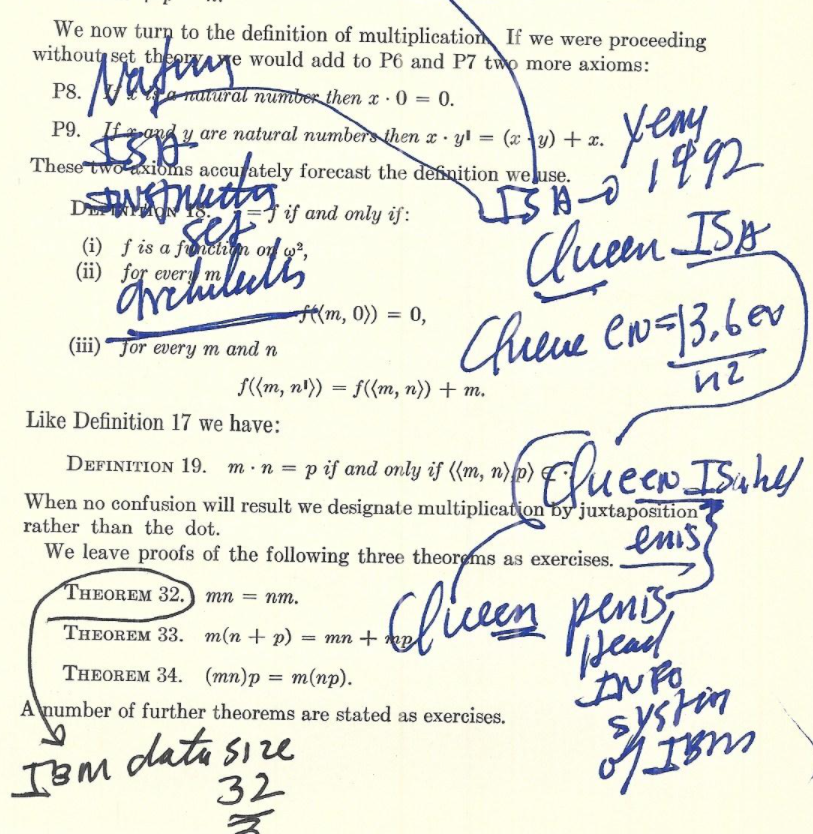 We now turn to the definition of multiplication. If we were proceeding
without set theory we would add to P6 and P7 two more axioms:
P8. If x is a natural number then x · 0 = 0.
P9. If x and y are natural numbers then x · yᶦ = (x · y) + x.
year
1492
These two axioms accurately forecast the definition we use.
ISA
ISA
Instructor
set
DEFINITION 18. · = f if and only if:
Queen ISA
(i) f is a function on ω²,
(ii) for every m
f(⟨m, 0⟩) = 0,
en = 13.6 ev
n2
(iii) for every m and n
f(⟨m, nᶦ⟩) = f(⟨m, n⟩) + m.
Like Definition 17 we have:
DEFINITION 19. m · n = p if and only if ⟨⟨m, n⟩,p⟩ ∈ ·
Queen
When no confusion will result we designate multiplication by juxtaposition
rather than the dot.
enis
We leave proofs of the following three theorems as exercises.
THEOREM 32. mn = nm.
Queen penis
THEOREM 33. m(n + p) = mn + mp
head
THEOREM 34. (mn)p = m(np).
INFO
system
of IBM
A number of further theorems are stated as exercises.
IBM data size
32